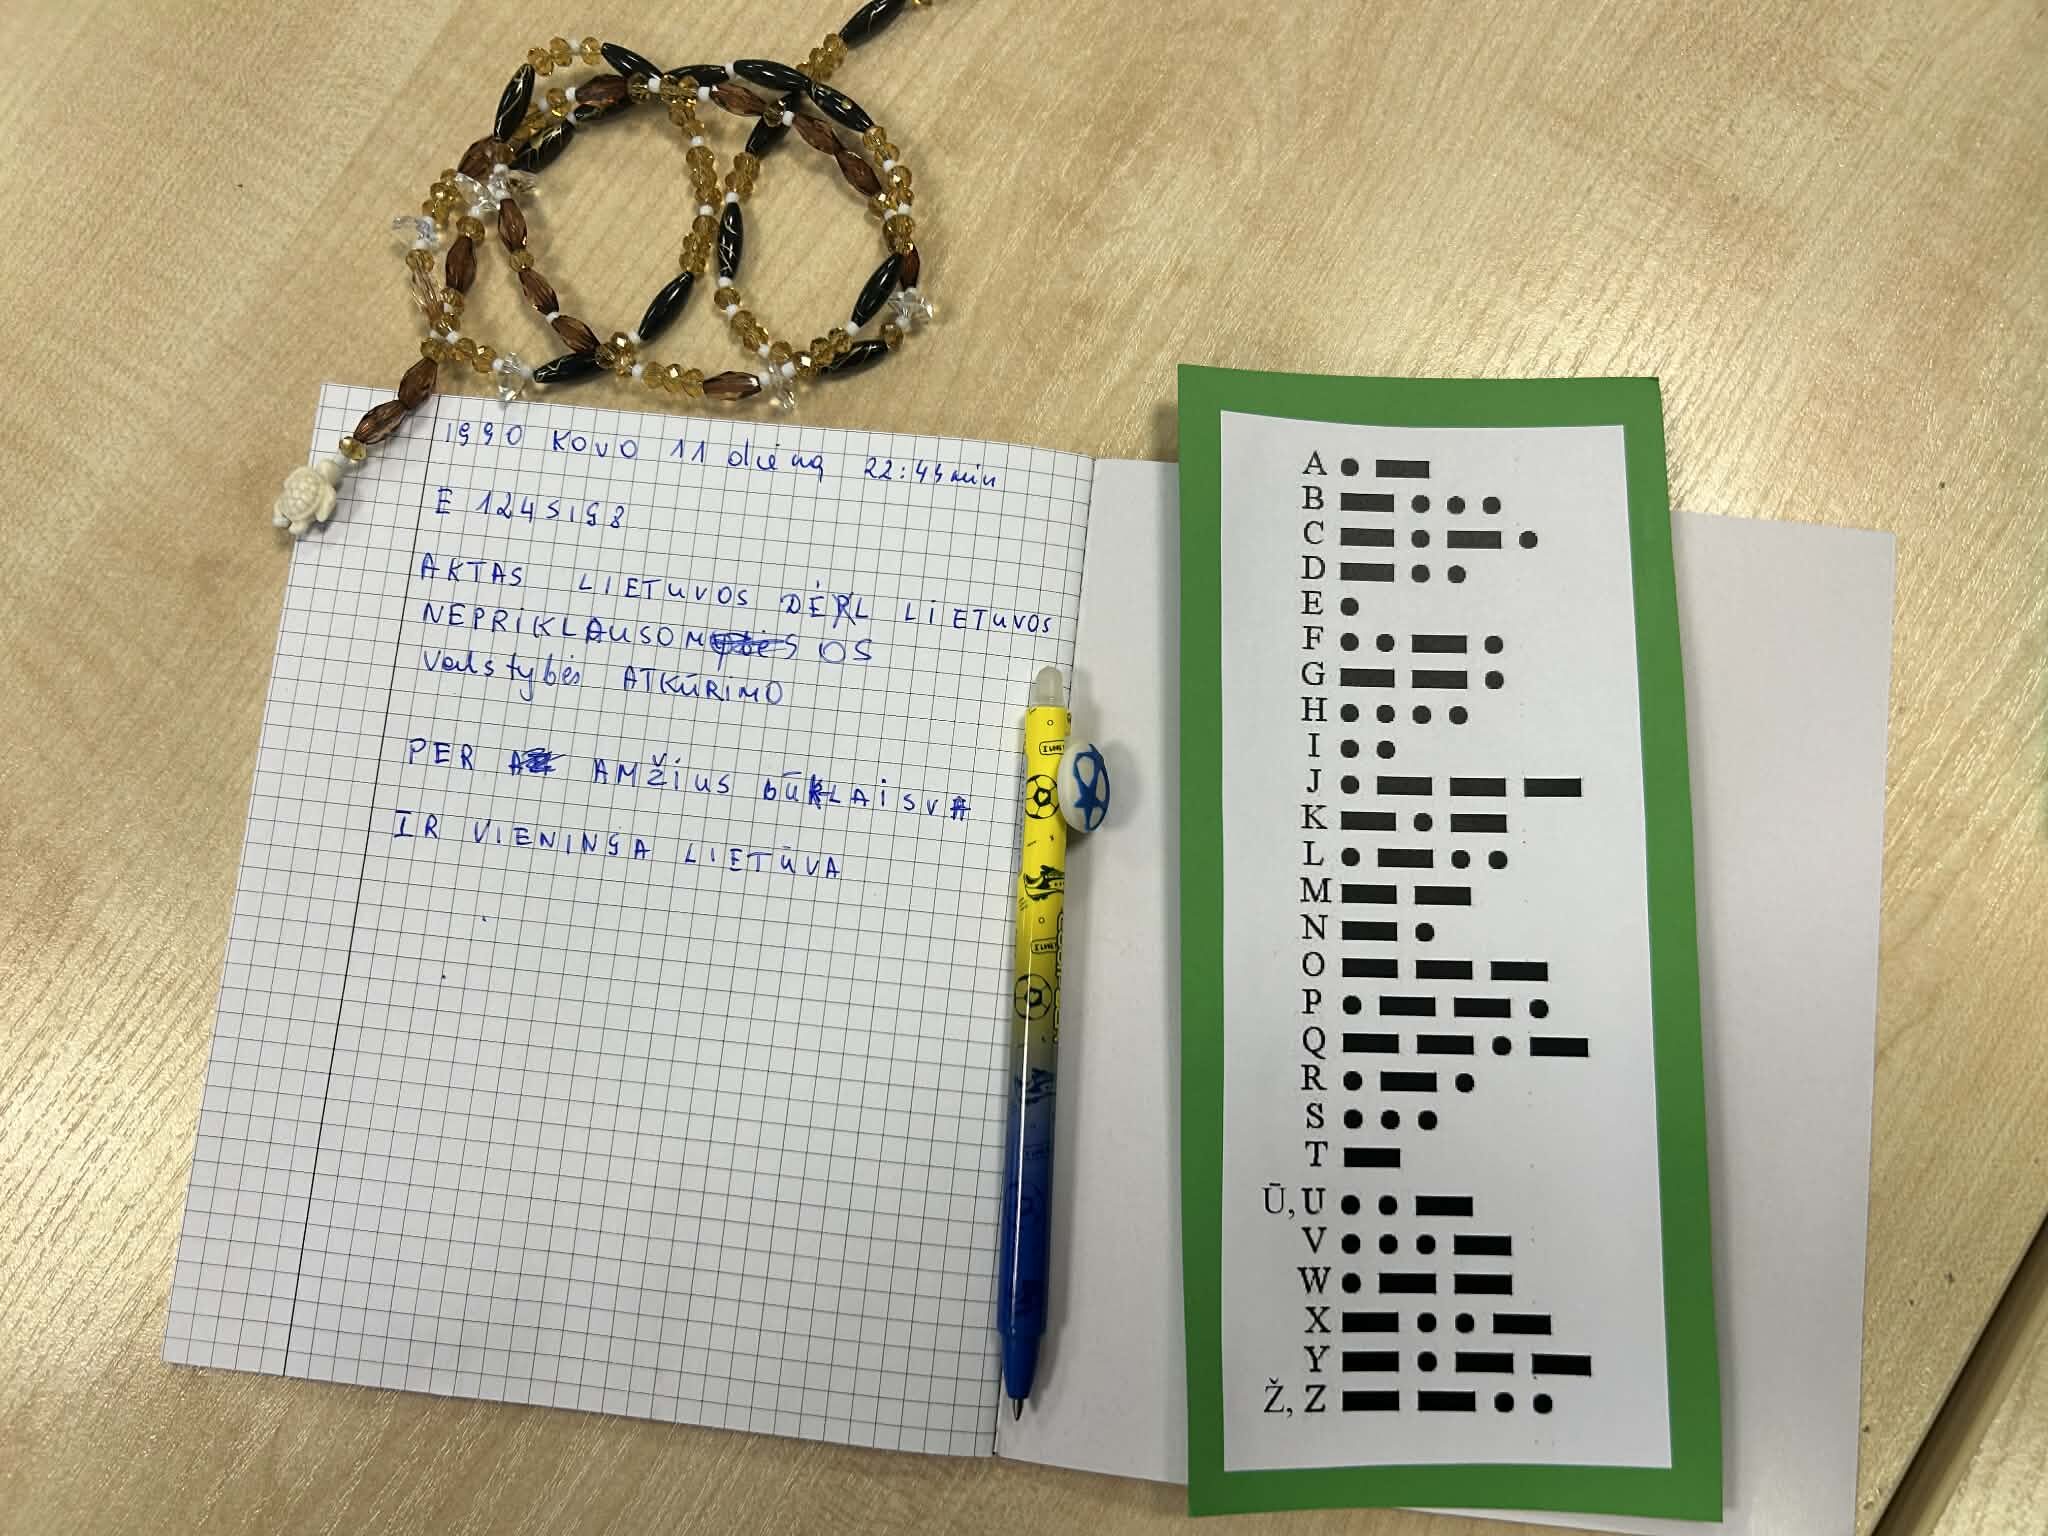 1990 KOVO 11 dieną 22:44 min
E 1245198
AKTAS LIETUVOS DĖL LIETUVOS
NEPRIKLAUSOM OS
Valstybės ATKŪRIMO
PER AMŽIUS BŪK LAISVA
IR VIENINGA LIETŪVA
A
B
C
D
E
F
G
H
I
J
K
L
M
N
O
P
Q
R
S
T
Ū, U
V
W
X
Y
Ž, Z